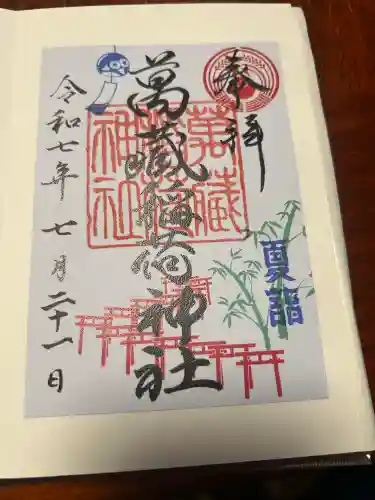 奉拝
夏詣
萬蔵稲荷神社
萬蔵
稲荷
神社
令和七年 七月二十一日